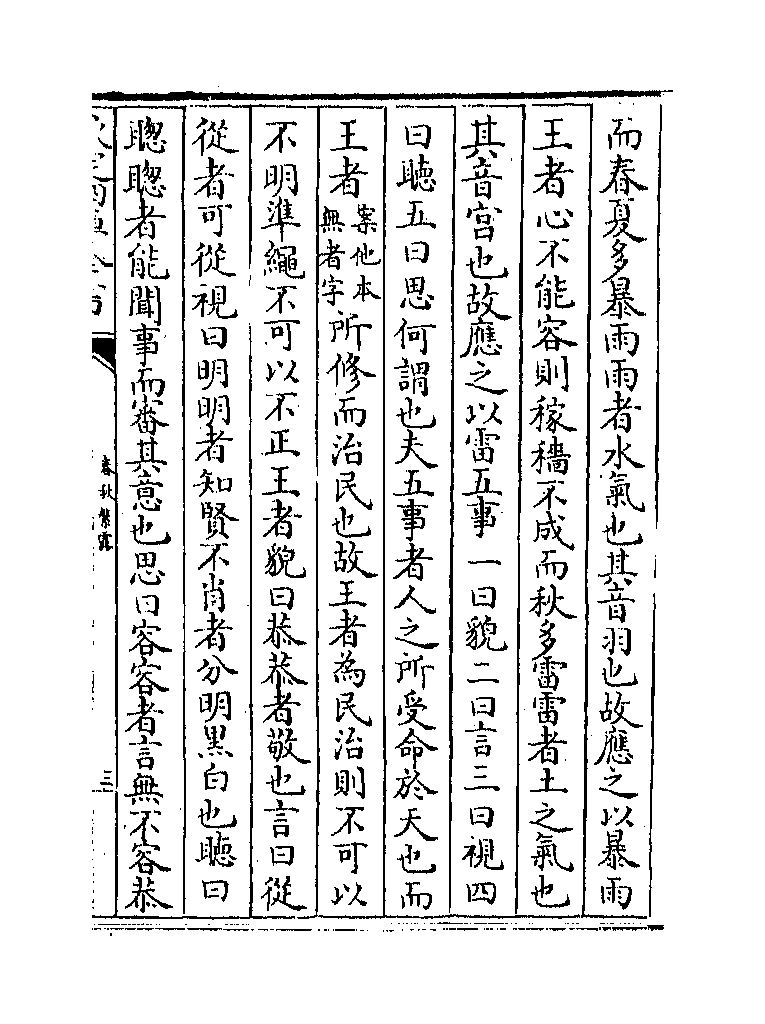 而春夏多暴雨雨者水氣也其音羽也故應之以暴雨
王者心不能容則稼穡不成而秋多雷雷者土之氣也
其音宫也故應之以雷五事一曰貌二曰言三曰視四
曰聽五曰思何謂也夫五事者人之所受命於天也而
王者案他本無者字所修而治民也故王者為民治則不可以
不明準繩不可以不正王者貌曰恭恭者敬也言曰從
從者可從視曰明明者知賢不肖者分明黒白也聽曰
聰聰者能聞事而審其意也思曰容容者言無不容恭
春秋繁露
三